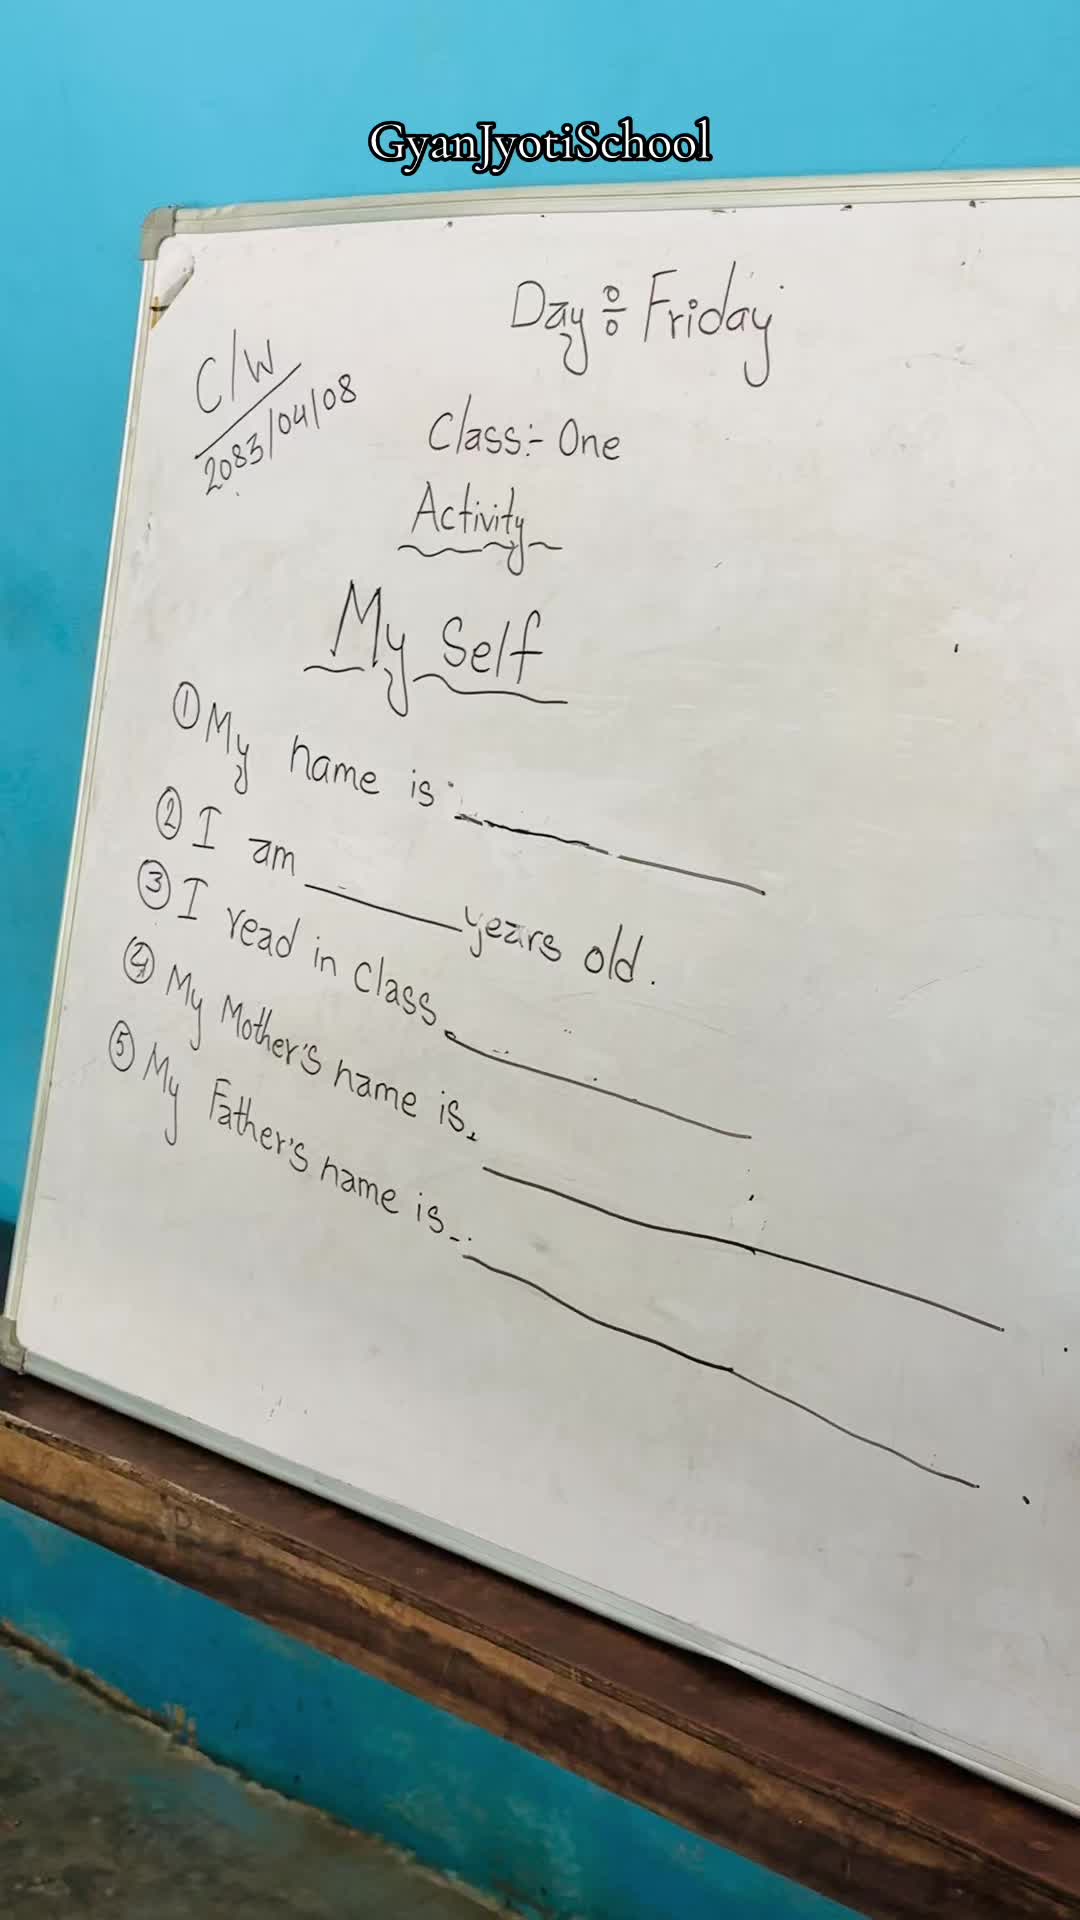 GyanJyotiSchool
Day ÷ Friday
C/W
2083/04/08
Class:- One
Activity
My Self
① My name is
② I am ______ years old.
③ I read in Class
④ My Mother's name is
⑤ My Father's name is